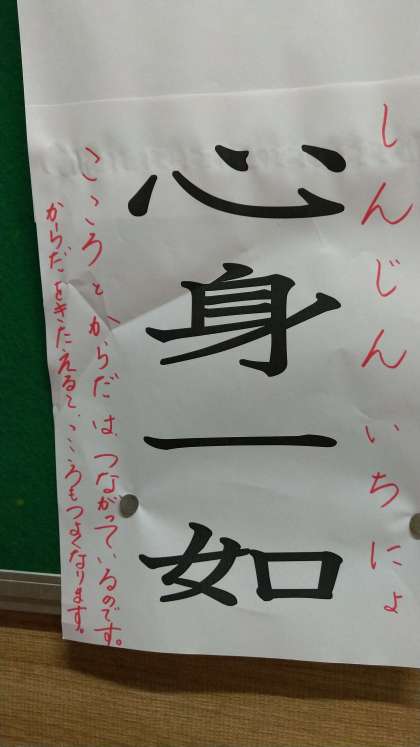 しんじんいちにょ
心身一如
こころと、からだは、つながっているのです。
からだをきたえると、こころもつよくなります。